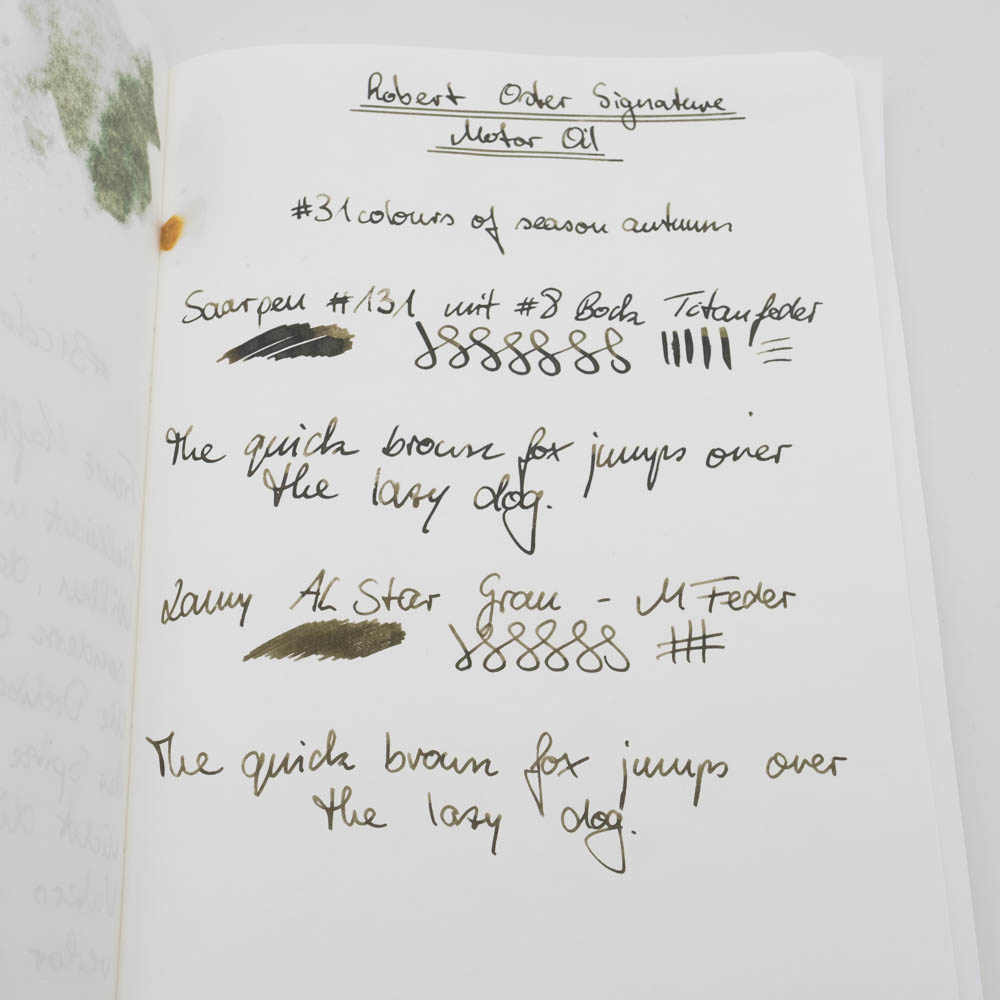 Robert Oster Signature
Motor Oil
#31colours of season autumn
Saarpen #131 mit #8 Bock Titanfeder
The quick brown fox jumps over
the lazy dog.
Lamy AL Star Grau - M Feder
The quick brown fox jumps over
the lazy dog.